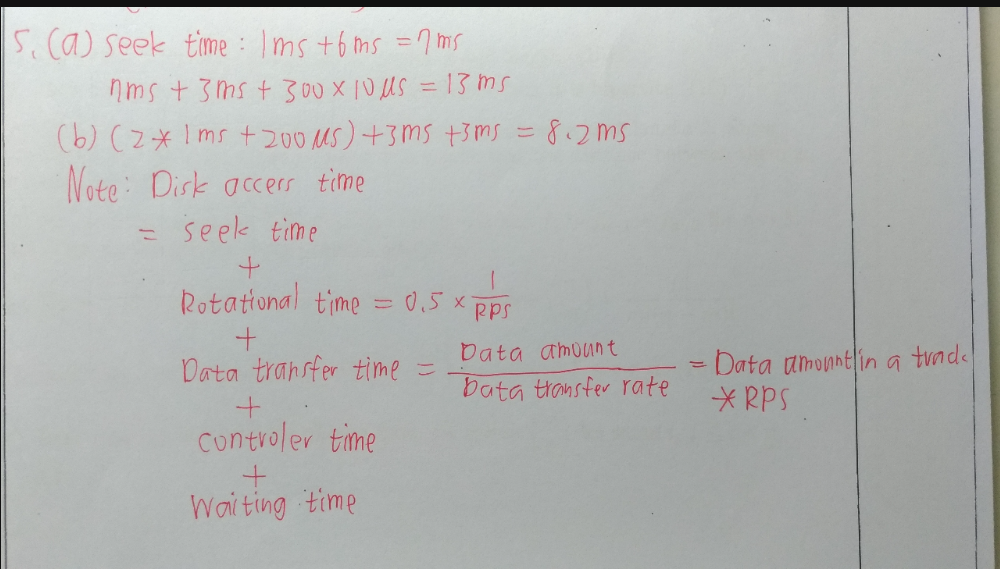 5. (a) seek time : 1ms + 6ms = 7ms
7ms + 3ms + 300 × 10 μs = 13 ms
(b) (2 * 1ms + 200 μs) + 3ms + 3ms = 8.2ms
Note: Disk access time
= seek time
+
Rotational time = 0.5 × 1/RPS
+
Data transfer time = Data amount / Data transfer rate = Data amount in a track * RPS
+
controler time
+
Waiting time